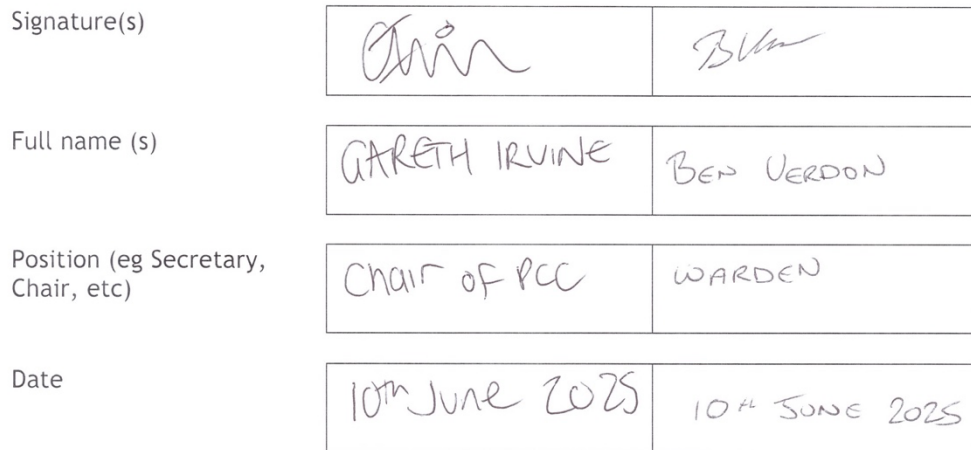 Signature(s)
Full name (s)
GARETH IRVINE
BEN VERDON
Position (eg Secretary,
Chair, etc)
Chair of PCC
WARDEN
Date
10th June 2025
10th JUNE 2025